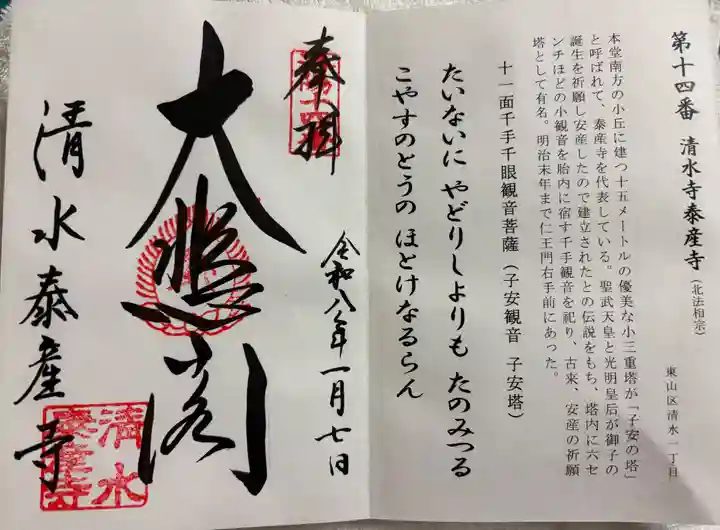 第十四番 清水寺泰産寺(北法相宗)
東山区清水一丁目
本堂南方の小丘に建つ十五メートルの優美な小三重塔が「子安の塔」
と呼ばれて、泰産寺を代表している。聖武天皇と光明皇后が御子の
誕生を祈願し安産したので建立されたとの伝説をもち、塔内に六セ
ンチほどの小観音を胎内に宿す千手観音を祀り、古来、安産の祈願
塔として有名。明治末年まで仁王門右手前にあった。
十一面千手千眼観音菩薩(子安観音 子安塔)
たいないに やどりしよりも たのみつる
こやすのとうの ほとけなるらん
奉拝
令和八年一月七日
大悲閣
清水泰産寺
清水
泰産寺